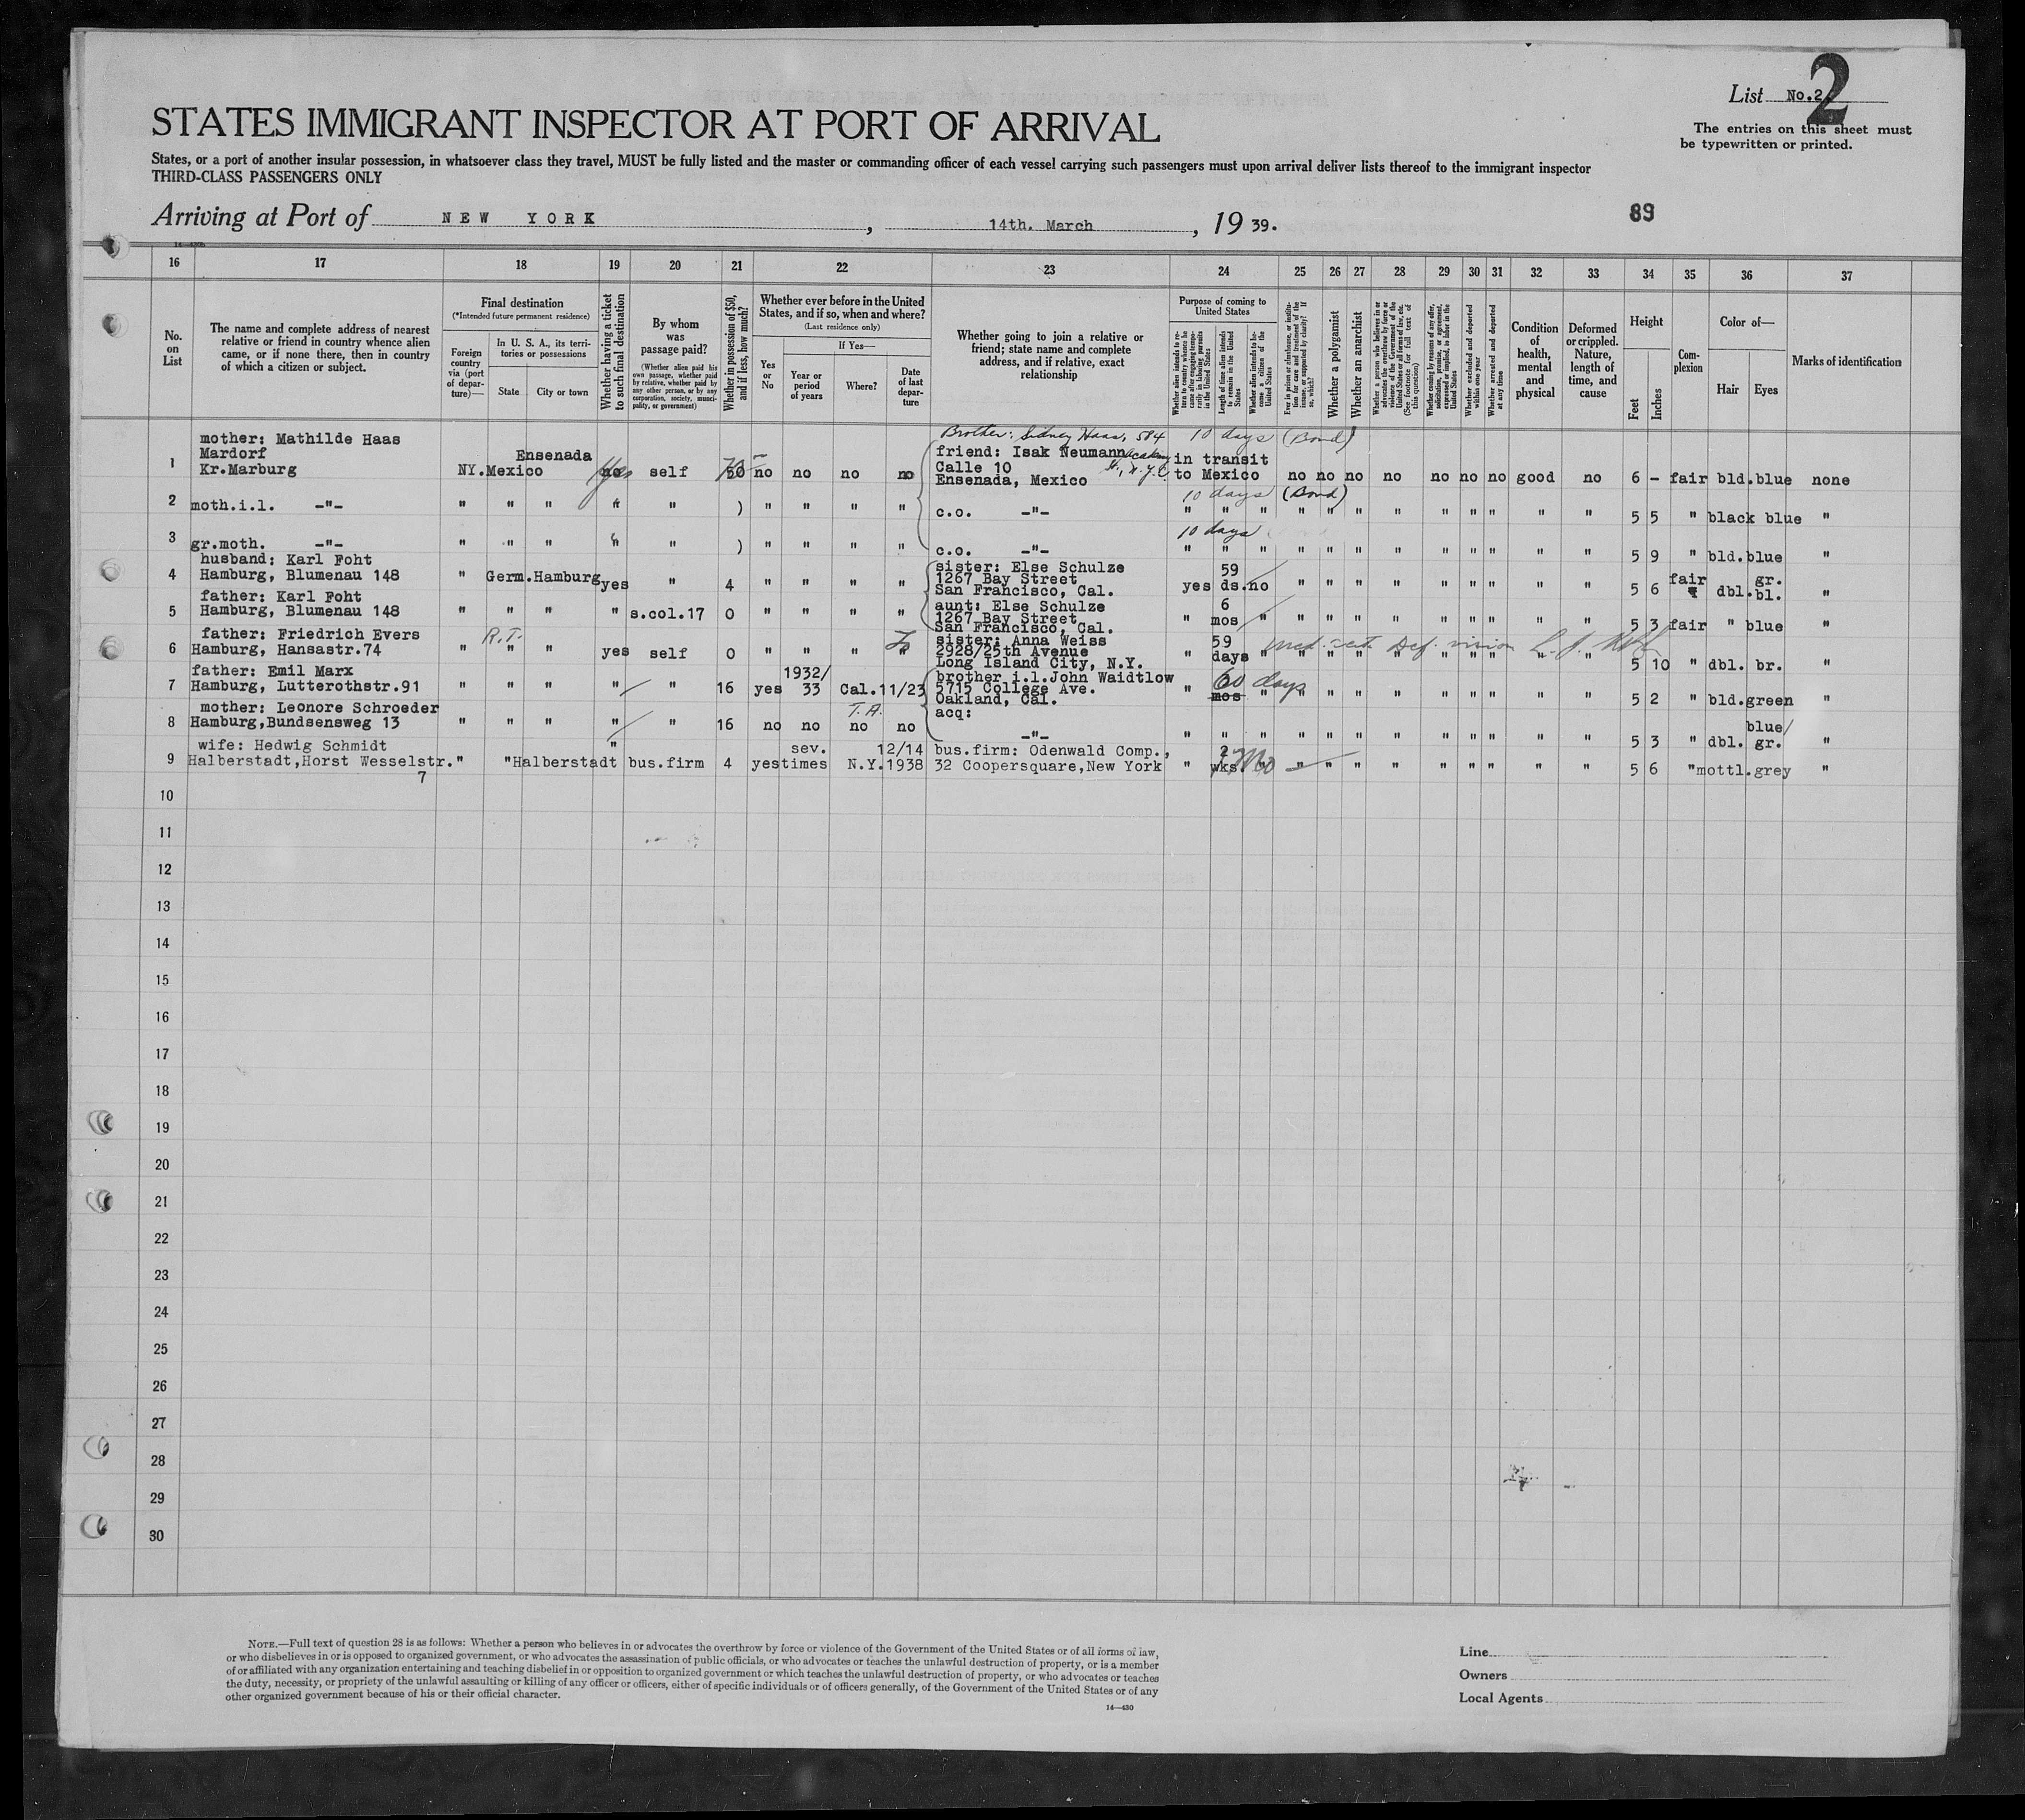 List No.2. 2
The entries on this sheet must
be typewritten or printed.
STATES IMMIGRANT INSPECTOR AT PORT OF ARRIVAL
States, or a port of another insular possession, in whatsoever class they travel, MUST be fully listed and the master or commanding officer of each vessel carrying such passengers must upon arrival deliver lists thereof to the immigrant inspector
THIRD-CLASS PASSENGERS ONLY
Arriving at Port of NEW YORK, 14th. March, 1939.
89
16 17 18 19 20 21 22 23 24 25 26 27 28 29 30 31 32 33 34 35 36 37
No. on List
The name and complete address of nearest relative or friend in country whence alien came, or if none there, then in country of which a citizen or subject.
Final destination
(*Intended future permanent residence)
Foreign country via (port of departure)—
In U. S. A., its territories or possessions
State City or town
Whether having a ticket to such final destination
By whom was passage paid?
(Whether alien paid his own passage, whether paid by relative, whether paid by any other person, or by any corporation, society, municipality, or government)
Whether in possession of $50, and if less, how much?
Whether ever before in the United States, and if so, when and where?
(Last residence only)
Yes or No
If Yes—
Year or period of years
Where?
Date of last departure
Whether going to join a relative or friend; state name and complete address, and if relative, exact relationship
Purpose of coming to United States
Length of time alien intends to remain in the United States
Whether alien intends to become a citizen of the United States
Whether a polygamist
Whether an anarchist
Whether excluded and deported within one year
Whether arrested and deported at any time
Condition of health, mental and physical
Deformed or crippled. Nature, length of time, and cause
Height
Feet Inches
Complexion
Color of—
Hair Eyes
Marks of identification
Brother: Sidney Haas, 584 10 days (Bond)
1 mother: Mathilde Haas
Mardorf
Kr.Marburg NY. Ensenada Mexico no yes self 50 no no no no
friend: Isak Neumann
Calle 10
Ensenada, Mexico
in transit
to Mexico no no no no no no no good no 6 - fair bld. blue none
10 days (Bond)
2 moth.i.l. -"- " " " " " ) " " " " c.o. -"- " " " " " " " " " " " " 5 5 " black blue "
10 days
3 gr.moth. -"- " " " " " ) " " " " c.o. -"- " " " " " " " " " " " " 5 9 " bld. blue "
4 husband: Karl Foht
Hamburg, Blumenau 148 " Germ. Hamburg yes " 4 " " " "
sister: Else Schulze
1267 Bay Street
San Francisco, Cal.
yes 59 ds. no " " " " " " " " " 5 6 fair dbl. gr. bl. "
5 father: Karl Foht
Hamburg, Blumenau 148 " " " " s.col.17 0 " " " "
aunt: Else Schulze
1267 Bay Street
San Francisco, Cal.
" 6 mos " " " " " " " " " " 5 3 fair " blue "
6 father: Friedrich Evers
Hamburg, Hansastr.74 R.T. " " " yes self 0 " " " "
sister: Anna Weiss
2928/25th Avenue
Long Island City, N.Y.
" 59 days " " " " " " " " " " 5 10 " dbl. br. "
Def. vision
7 father: Emil Marx
Hamburg, Lutterothstr.91 " " " " " 16 yes 1932/33 Cal. 11/23
brother i.l.John Waidtlow
5715 College Ave.
Oakland, Cal.
" mos 60 days " " " " " " " " " " 5 2 " bld. green "
8 mother: Leonore Schroeder
Hamburg,Bundsensweg 13 " " " " " 16 no no T.A. no no
acq:
-"- " " " " " " " " " " " " 5 3 " dbl. blue/gr. "
9 wife: Hedwig Schmidt
Halberstadt,Horst Wesselstr. 7 " " Halberstadt " bus.firm 4 yes sev. times N.Y. 12/14 1938
bus.firm: Odenwald Comp.,
32 Coopersquare,New York
" 2 wks " " " " " " " " " " 5 6 " mottl. grey "
10
11
12
13
14
15
16
17
18
19
20
21
22
23
24
25
26
27
28
29
30
NOTE.—Full text of question 28 is as follows: Whether a person who believes in or advocates the overthrow by force or violence of the Government of the United States or of all forms of law,
or who disbelieves in or is opposed to organized government, or who advocates the assassination of public officials, or who advocates or teaches the unlawful destruction of property, or is a member
of or affiliated with any organization entertaining and teaching disbelief in or opposition to organized government or which teaches the unlawful destruction of property, or who advocates or teaches
the duty, necessity, or propriety of the unlawful assaulting or killing of any officer or officers, either of specific individuals or of officers generally, of the Government of the United States or of any
other organized government because of his or their official character.
14—430
Line
Owners
Local Agents